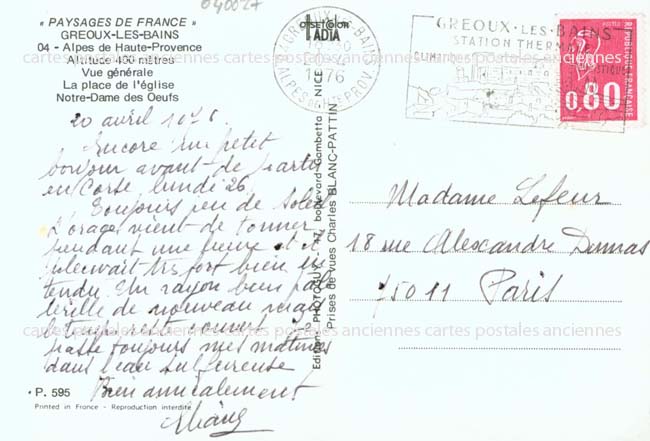 040027
« PAYSAGES DE FRANCE »
GREOUX-LES-BAINS
04 - Alpes de Haute-Provence
Altitude 400 mètres
Vue générale
La place de l'église
Notre-Dame des Oeufs
20 avril 1976.
Encore un petit
bonjour avant de partir
en Corse, lundi 26.
Toujours peu de soleil
L'orage vient de tonner
pendant une heure et il
pleuvait très fort bien
tendu. Un rayon
brille de nouveau
le temps reste
passe toujours mes matinées
dans l'eau sulfureuse
Bien amicalement
P. 595
Printed in France - Reproduction interdite
OFFSETCOLOR
ADIA
GREOUX-LES-BAINS
1976
GREOUX-LES-BAINS
STATION THERMALE
CLIMATIQUE
REPUBLIQUE FRANÇAISE
0,80
Edition PHOTOGUY boulevard Gambetta NICE
Prises de vues Charles BLANC-PATTIN
Madame Lefeur
18 rue Alexandre Dumas
75011 Paris
cartes postales anciennes cartes postales anciennes cartes postales anciennes
cartes postales anciennes cartes postales anciennes cartes postales anciennes